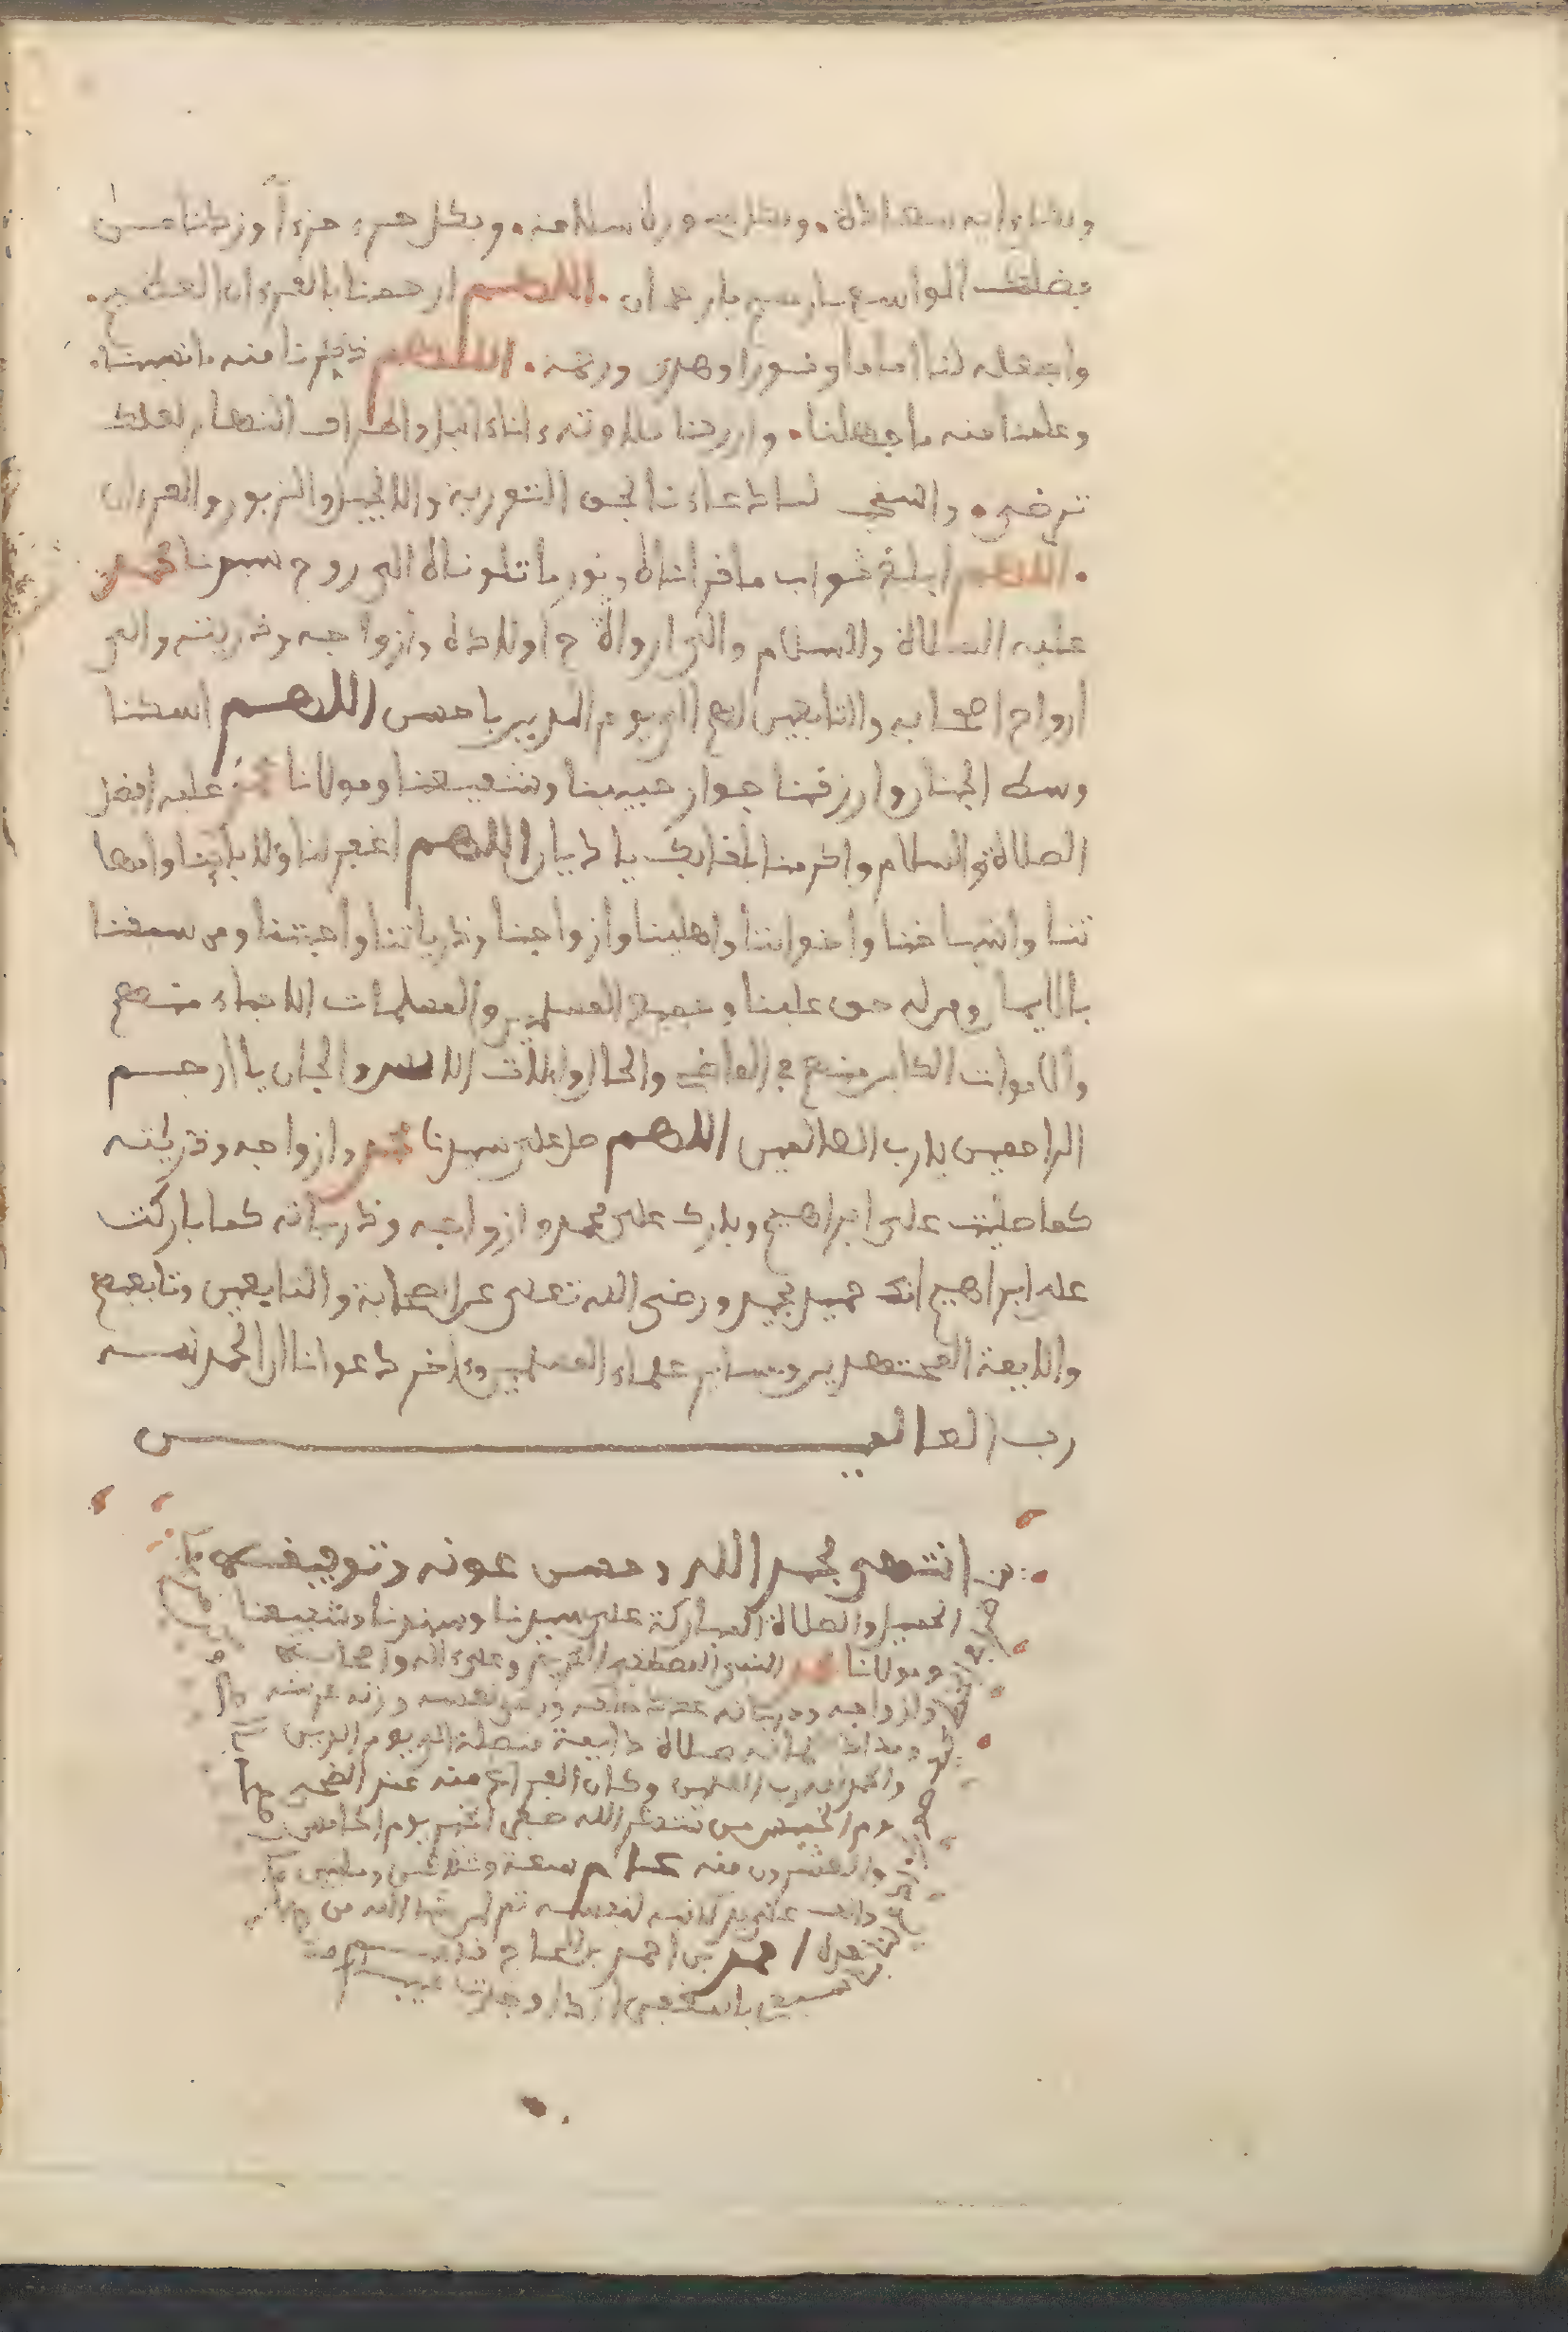 وبكل ءاية سعادة. وبكل سورة سلامة. وبكل جزء جزءا وزدنا من
فضلك الواسع يا رحيم يا رحمان. اللهم ارحمنا بالقرءان العظيم.
واجعله لنا اماما ونورا وهدى ورحمة. اللهم ذكرنا منه ما نسينا.
وعلمنا منه ما جهلنا. وارزقنا تلاوته ءاناء اليل واطراف النهار لعلك
ترضى. دعاءنا بحق التورية والانجيل والزبور والفرءان
. اللهم ابلغ ثواب ما قراناه ونور ما تلوناه الى روح سيدنا محمد
عليه الصلاة والسلام والى ارواح اولاده وازواجه وذريته والى
ارواح اصحابه والتابعين لهم الى يوم الدين باحسن اللهم اسكنا
وسط الجنان وارزقنا جوار حبيبنا وشفيعنا ومولانا محمد عليه افضل
الصلاة والسلام واكرمنا بلقائك يا ديان اللهم اغفر لنا ولابائنا وامها
تنا واشياخنا واخواننا واهلينا وازواجنا وذرياتنا واحبتنا ومن سبقنا
بالايمان ومن له حق علينا وجميع المسلمين والمسلمات الاحياء منهم
والاموات الكاين منهم في الماضي والحال والات الانس والجان يا ارحم
الراحمين يا رب العالمين اللهم صل على سيدنا محمد وازواجه وذريته
كما صليت على ابراهيم وبارك على محمد وازواجه وذرياته كما باركت
على ابراهيم انك حميد مجيد ورضي الله تعلى عن الصحابة والتابعين وتابعهم
والايمة المجتهدين وساير علماء المسلمين وءاخر دعوانا ان الحمد لله
رب العالمين
انتهى بحمد الله وحسن عونه وتوفيقه
الجميل والصلاة المباركة على سيدنا وسندنا وشفيعنا
ومولانا محمد النبي المصطفى الكريم وعلى ءاله واصحابه
وازواجه وذرياته عدد خلقه ورضى نفسه وزنة عرشه
ومداد كلماته صلاة دايمة متصلة الى يوم الدين
والحمد لله رب العلمين وكان الفراغ منه عند الضحى
يوم الخميس من شهر الله صفر الخير يوم الخامس
والعشرون منه عام سبعة وثلاثين ومايتين
والف على يد كاتبه لنفسه ثم لمن شاء الله من
بعده احمد بن احمد بن الحاج